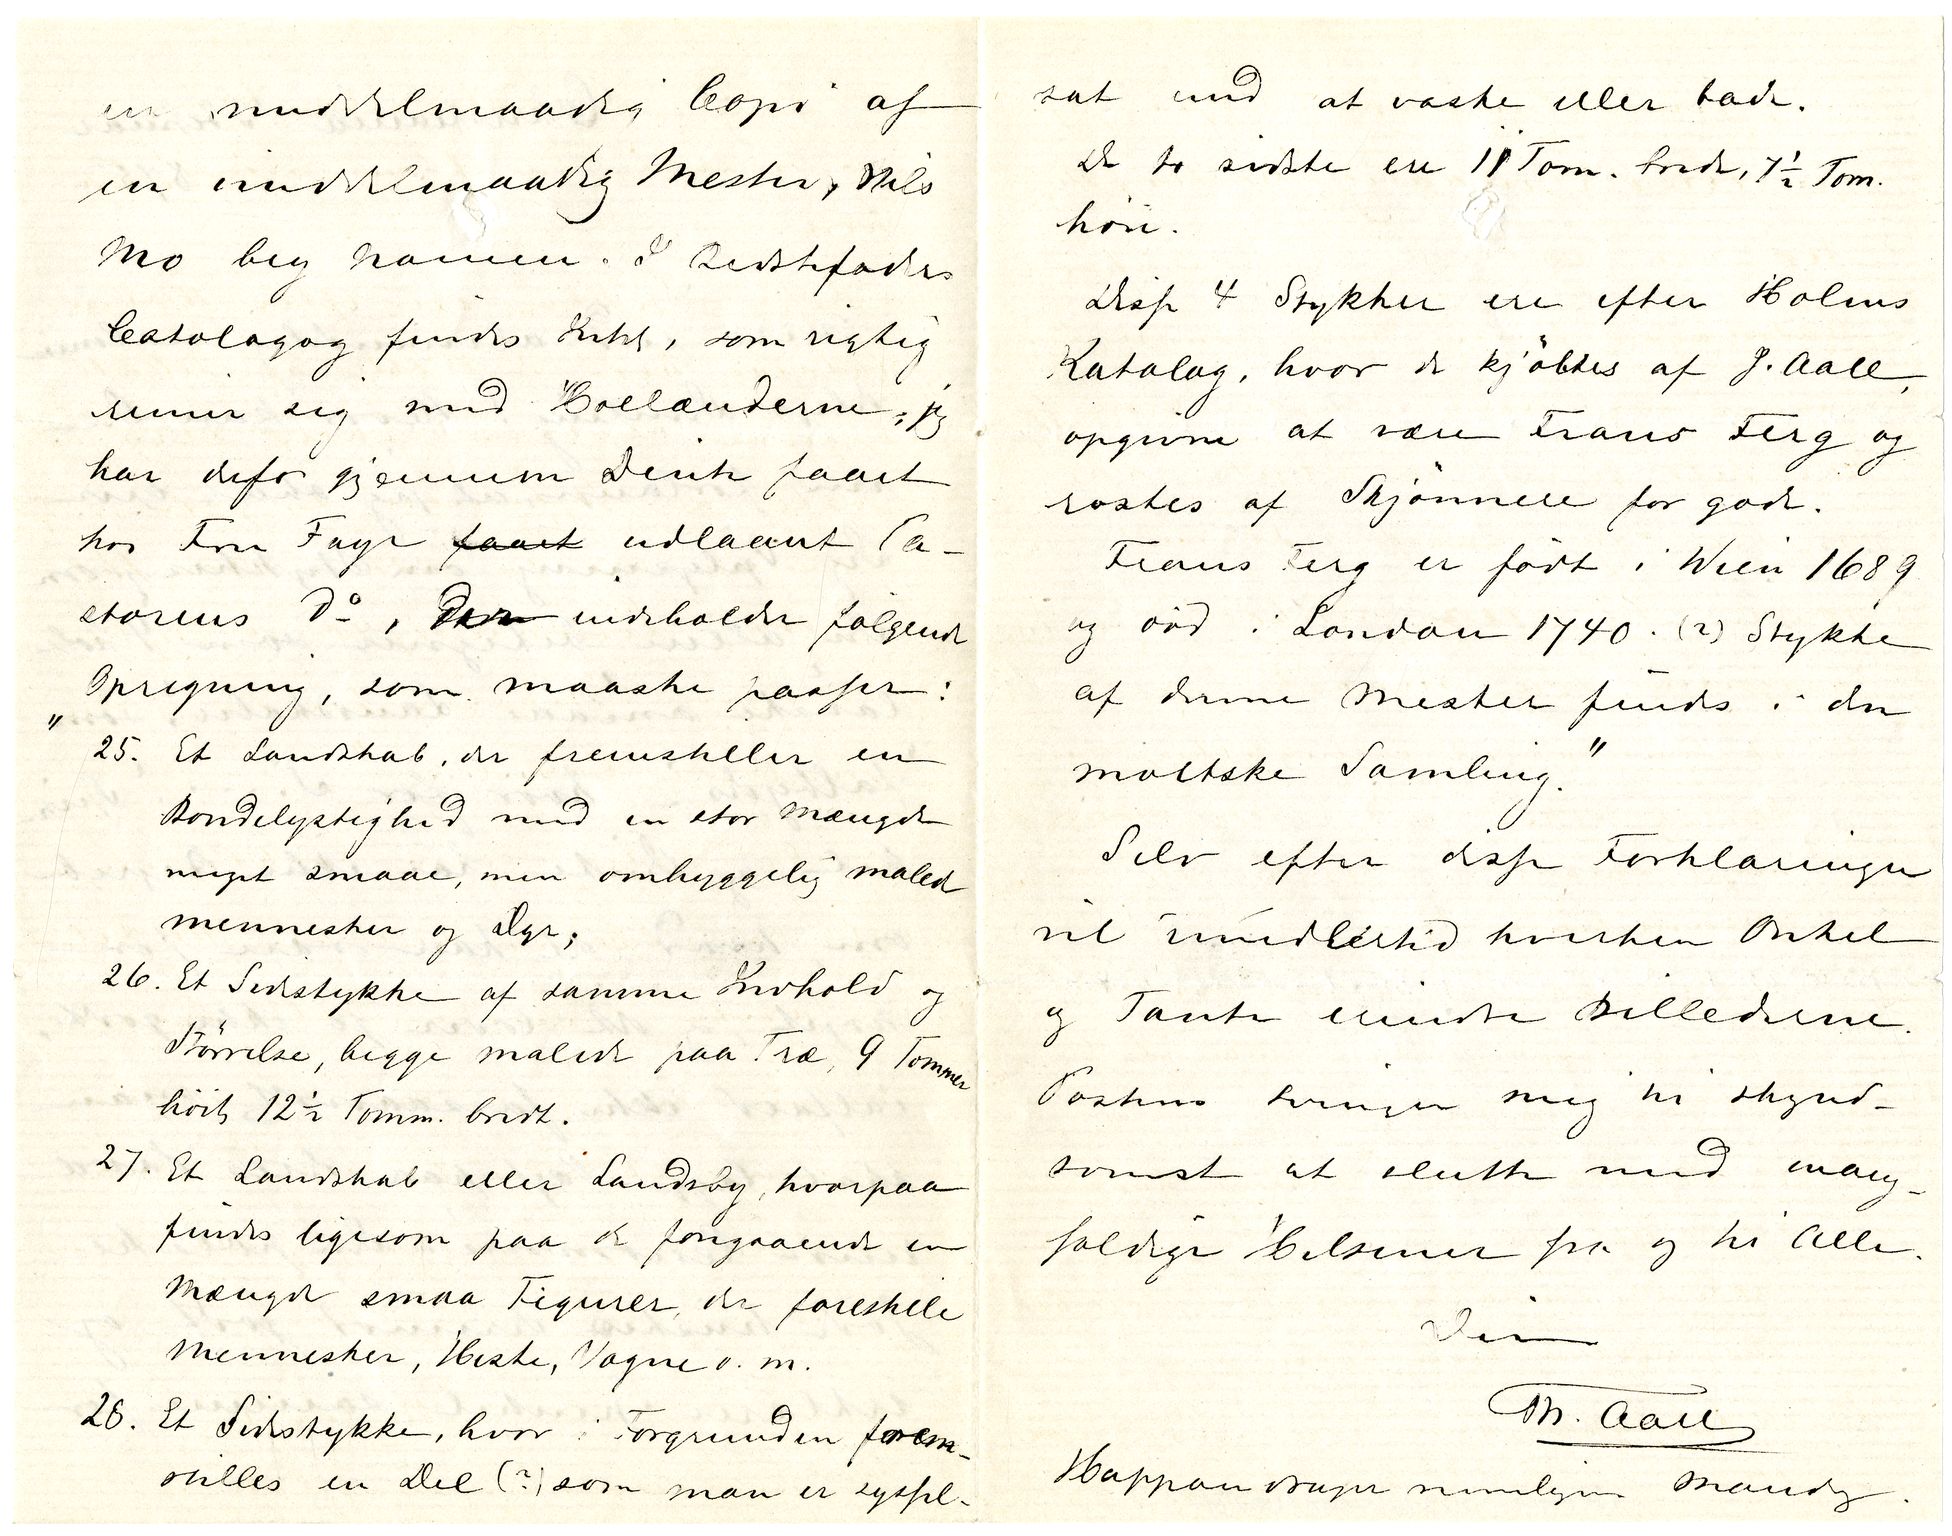 en middelmaadig Copi af
en middelmaadig Mester, Nils
Mo beg Navnen. I Bedstefaders
Catolagog findes Intet, som rigtig
rimer sig med Hollænderne; jeg
har defor gjennem Dente faaet
hos Fru Faye faaet udlaant Ca-
storens Do, Den indeholder følgende
Opregning, som maaske passer:
"
25. Et Landskab, der fremstiller en
Bondelystighed med en stor Mængde
meget smaae, men omhyggelig malede
Mennesker og Dyr;
26. Et Sidestykke af samme Indhold og
Størrelse, begge malede paa Træ, 9 Tommer
høit, 12½ Tomm. bredt.
27. Et Landskab eller Landsby, hvorpaa
findes ligesom paa de forrgaaende en
Mængde smaa Figurer, der forestille
Mennesker, Heste, Vogne o. m.
28. Et Sidestykke, hvor i Forgrunden frem-
stilles en Del (?) som man er syssel-
sat med at vaske eller bade.
De to sidste ere 11 Tom. brede, 7½ Tom.
høie.
Disse 4 Stykker ere efter Holms
Katalog, hvor de kjöbtes af J. Aall,
opgivne at være Frans Ferg og
rostes af Skjönnere for gode.
Frans Ferg er födt i Wien 1689
og död i London 1740. (2) Stykke
af denne Mester findes i den
moltske Samling."
Selv efter disse Forklaringer
vil imidlertid hverken Onkel
og Tante erindre Billederne.
Posten tvinger mig til skynd-
somst at slutte med mang-
foldige Hilsener fra og til Alle.
Din
Th. Aall
Happan drager nemligen Mandag.